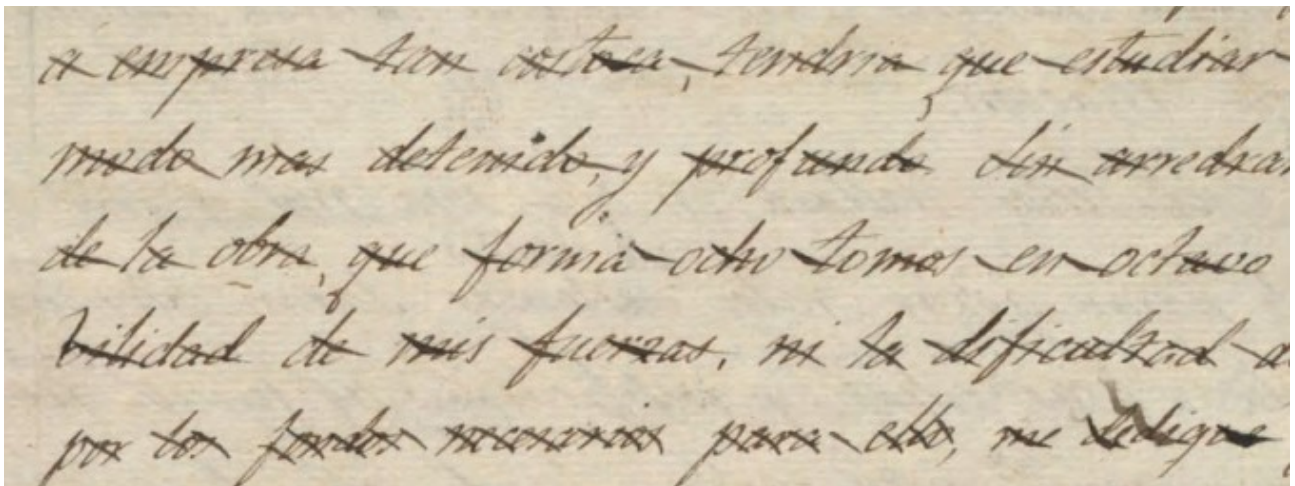 á empresa tan costosa, tendria que estudiar
modo mas detenido, y profundo sin arredrar
de la obra, que forma ocho tomos en octavo
bilidad de mis fuerzas, ni la dificultad d
por los fondos necesarios para ello, me dediqué